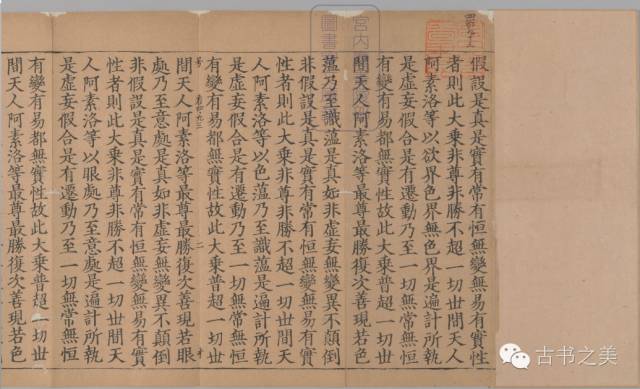 假設是真是實有常有恒無變無易有實性
者則此大乗非尊非勝不超一切世間天人
阿素洛等以欲界色界無色界是遍計所執
是虛妄假合是有遷動乃至一切無常無恒
有變有易都無實性故此大乗普超一切世
間天人阿素洛等最尊最勝復次善現若色
藴乃至識藴是真如非虛妄無變異不顛倒
非假設是真是實有常有恒無變無易有實
性者則此大乗非尊非勝不超一切世間天
人阿素洛等以色藴乃至識藴是遍計所執
是虛妄假合是有遷動乃至一切無常無恒
有變有易都無實性故此大乗普超一切世
二
間天人阿素洛等最尊最勝復次善現若眼
處乃至意處是真如非虛妄無變異不顛倒
非假設是真是實有常有恒無變無易有實
性者則此大乗非尊非勝不超一切世間天
人阿素洛等以眼處乃至意處是遍計所執
是虛妄假合是有遷動乃至一切無常無恒
有變有易都無實性故此大乗普超一切世
間天人阿素洛等最尊最勝復次善現若色
宮内
圖書
古书之美